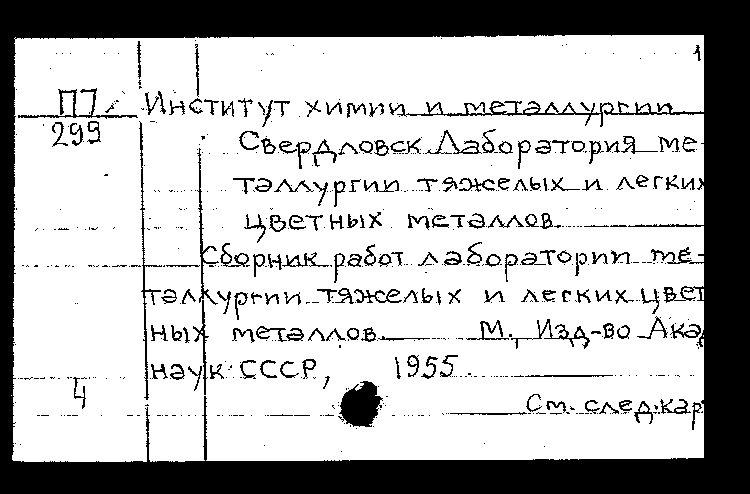 1
П7 Институт химии и металлургии
299 Свердловск Лаборатория ме-
таллургии тяжелых и легких
цветных металлов.
Сборник работ лаборатории ме-
таллургии тяжелых и легких цвет
ных металлов. М., Изд-во Акад
наук СССР, 1955.
4
См. след. кар